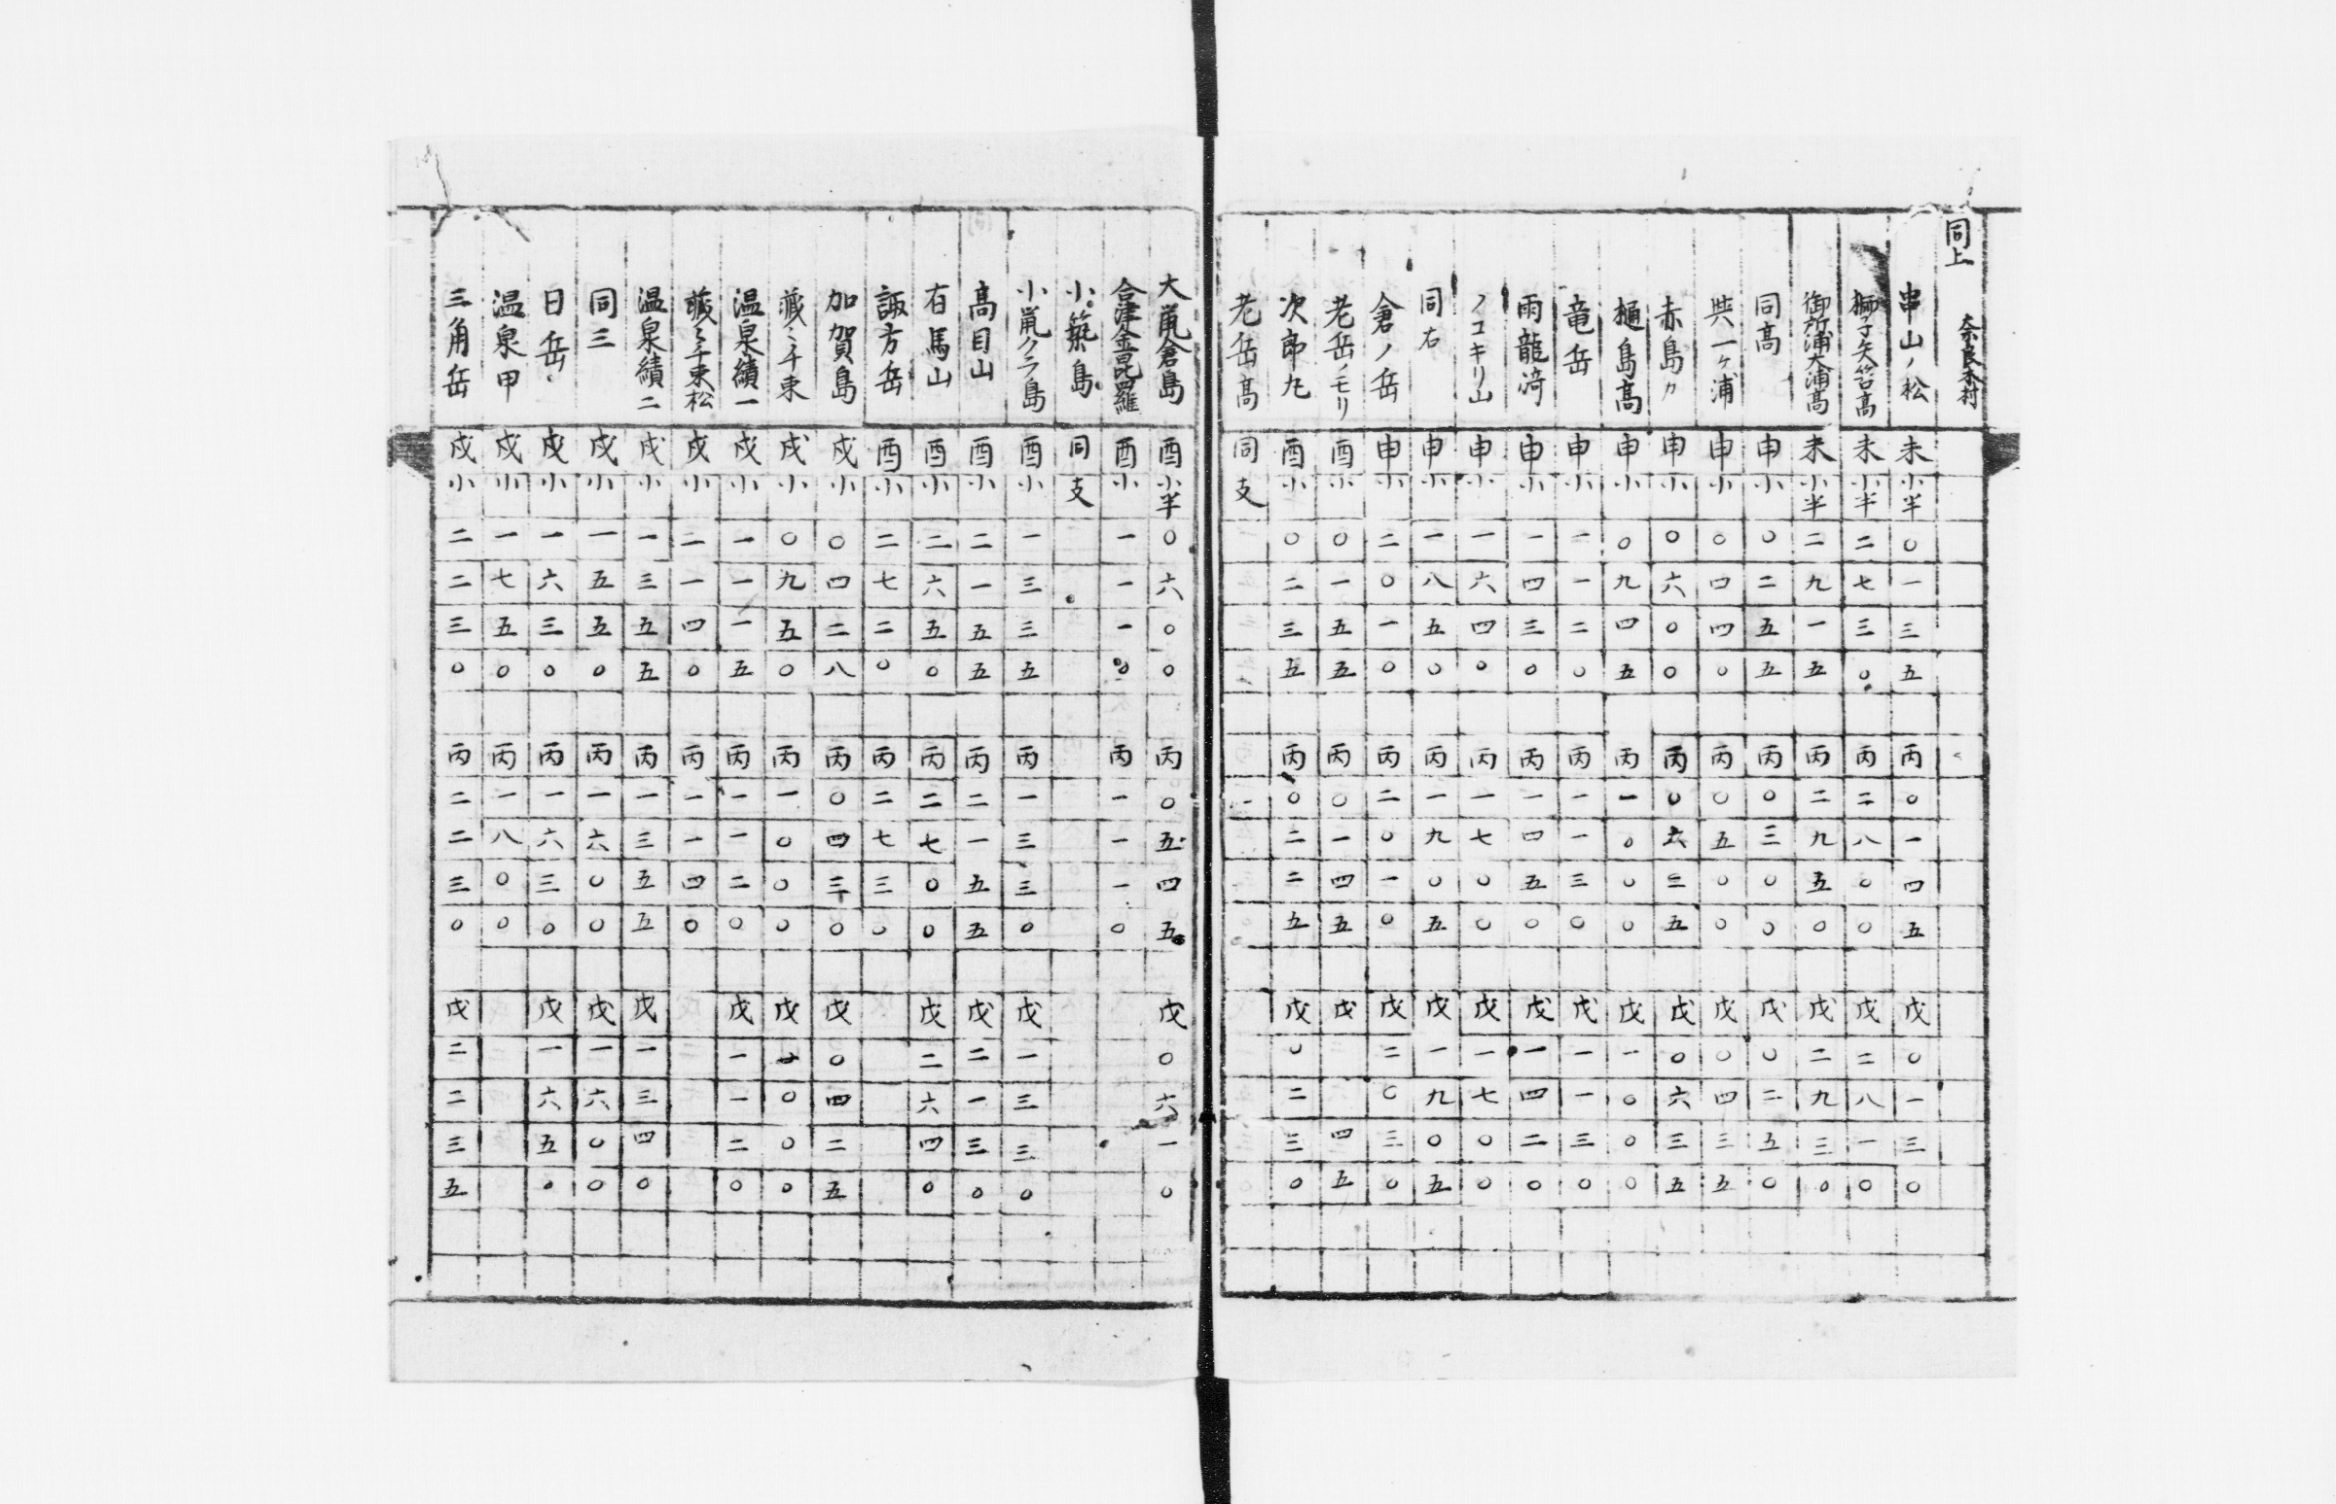 同上 奈良木村
串山ノ松 未 小半 〇 一 三 五 丙 〇 一 四 五 戊 〇 一 三 〇
獅子矢筈高 未 小半 二 七 三 〇 丙 二 八 〇 〇 戊 二 八 一 〇
御所浦大浦高 未 小半 二 九 一 五 丙 二 九 五 〇 戊 二 九 三 〇
同高 申 小 〇 二 五 五 丙 〇 三 〇 〇 戊 〇 二 五 〇
與一ヶ浦 申 小 〇 四 四 〇 丙 〇 五 〇 〇 戊 〇 四 三 五
赤島カ 申 小 〇 六 〇 〇 丙 〇 六 三 五 戊 〇 六 三 五
樋島高 申 小 〇 九 四 五 丙 一 〇 〇 〇 戊 一 〇 〇 〇
竜岳 申 小 一 一 二 〇 丙 一 一 三 〇 戊 一 一 三 〇
雨龍﨑 申 小 一 四 三 〇 丙 一 四 五 〇 戊 一 四 二 〇
ノコキリ山 申 小 一 六 四 〇 丙 一 七 〇 〇 戊 一 七 〇 〇
同右 申 小 一 八 五 〇 丙 一 九 〇 五 戊 一 九 〇 五
倉ノ岳 申 小 二 〇 一 〇 丙 二 〇 一 〇 戊 二 〇 三 〇
老岳ノモリ 酉 小 〇 一 五 五 丙 〇 一 四 五 戊 四 五
次郎丸 酉 小 〇 二 三 五 丙 〇 二 二 五 戊 〇 二 三 〇
老岳高 同支
大鼠倉島 酉 小半 〇 六 〇 〇 丙 〇 五 四 五 戊 〇 六 一 〇
合津金毘羅 酉 小 一 一 一 〇 丙 一 一 一 〇
小築島 同支
小鼠クラ島 酉 小 一 三 三 五 丙 一 三 三 〇 戊 一 三 三 〇
高目山 酉 小 二 一 五 五 丙 二 一 五 五 戊 二 一 三 〇
右馬山 酉 小 二 六 五 〇 丙 二 七 〇 〇 戊 二 六 四 〇
諏方岳 酉 小 二 七 二 〇 丙 二 七 三 〇
加賀島 戍 小 〇 四 二 八 丙 〇 四 三 〇 戊 〇 四 二 五
蔵ミチ東 戍 小 〇 九 五 〇 丙 一 〇 〇 〇 戊 一 〇 〇 〇
温泉績一 戍 小 一 一 一 五 丙 一 一 二 〇 戊 一 一 二 〇
蔵ミチ東松 戍 小 二 一 四 〇 丙 二 一 四 〇
温泉績二 戍 小 一 三 五 五 丙 一 三 五 五 戊 一 三 四 〇
同三 戍 小 一 五 五 〇 丙 一 六 〇 〇 戊 一 六 〇 〇
日岳 戍 小 一 六 三 〇 丙 一 六 三 〇 戊 一 六 五 〇
温泉甲 戍 小 一 七 五 〇 丙 一 八 〇 〇
三角岳 戍 小 二 二 三 〇 丙 二 二 三 〇 戊 二 二 三 五